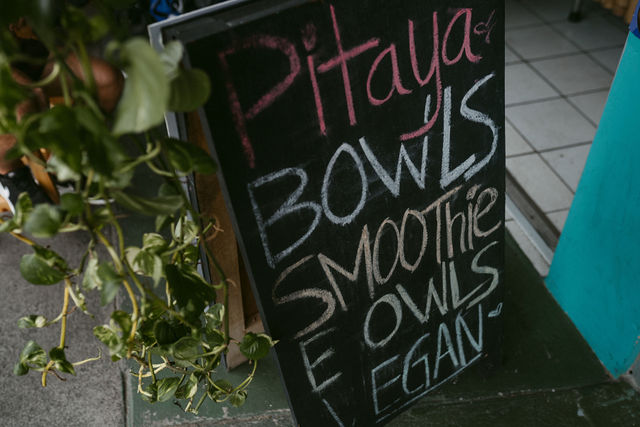 Pitaya
BOWLS
SMOOThie
BOWLS
VEGAN